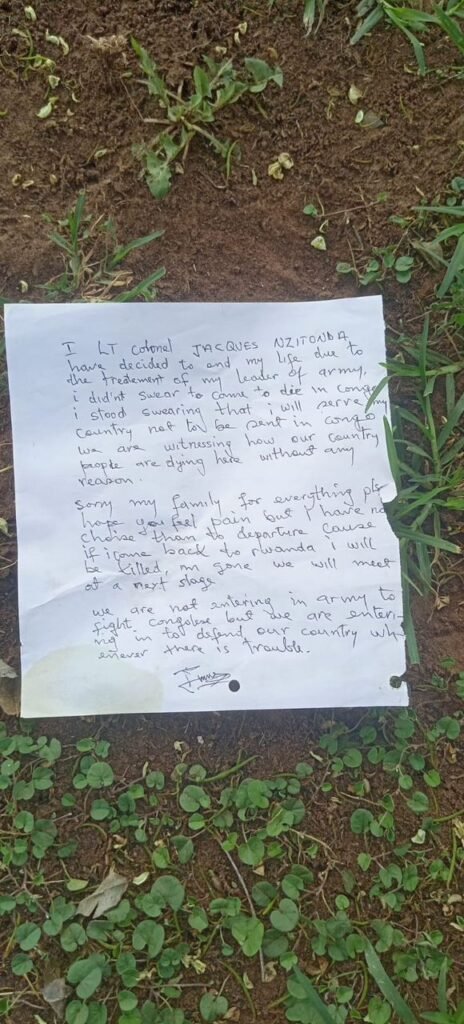 I LT Colonel JACQUES NZITONDA
have decided to end my life due to
the tredement of my leader of army,
i didnt swear to come to die in congo
i stood swearing that i will serve my
country not to be sent in congo
we are witnessing how our country
people are dying here without any
reason.
sorry my family for everything pls
hope you feel pain but i have no
choise than to departure cause
if i come back to rwanda i will
be killed, m gone we will meet
at a next stage
we are not entering in army to
fight congolese but we are enteri-
ng in to defend our country wh
enever there is trouble.